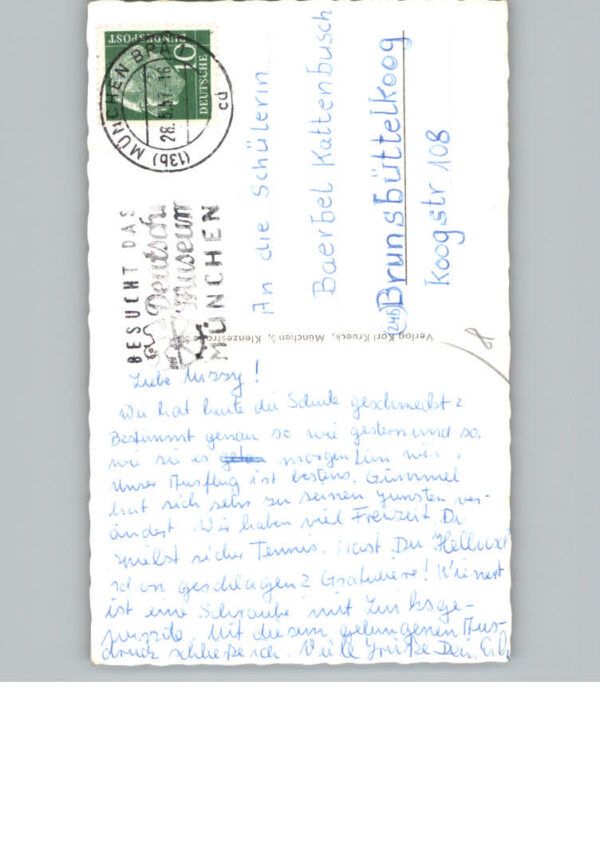 DEUTSCHE
BUNDESPOST
10
(13b) MÜNCHEN BPA
28.5.57
cd
BESUCHT DAS
Deutsche
Museum
MÜNCHEN
An die Schülerin
Baerbel Kattenbusch
(24b) Brunsbüttelkoog
Koogstr 108
Verlag Karl Kroeck, München 5, Klenzestraße
Liebe Mizzy!
Wie hat heute die Schule geschmeckt?
Bestimmt genau so wie gestern und so,
wie sie es morgen tun wird.
Unser Ausflug ist bestens. Gümmel
hat sich sehr zu seinen Gunsten ver-
ändert. Wir haben viel Freizeit. Du
spielst sicher Tennis. Hast Du "Hellus"
schon geschlagen? Gratuliere! Wie nett
ist eine Schraube mit Linksge-
winde. Mit diesem gelungenen Aus-
druck schließe ich. Viele Grüße Dein